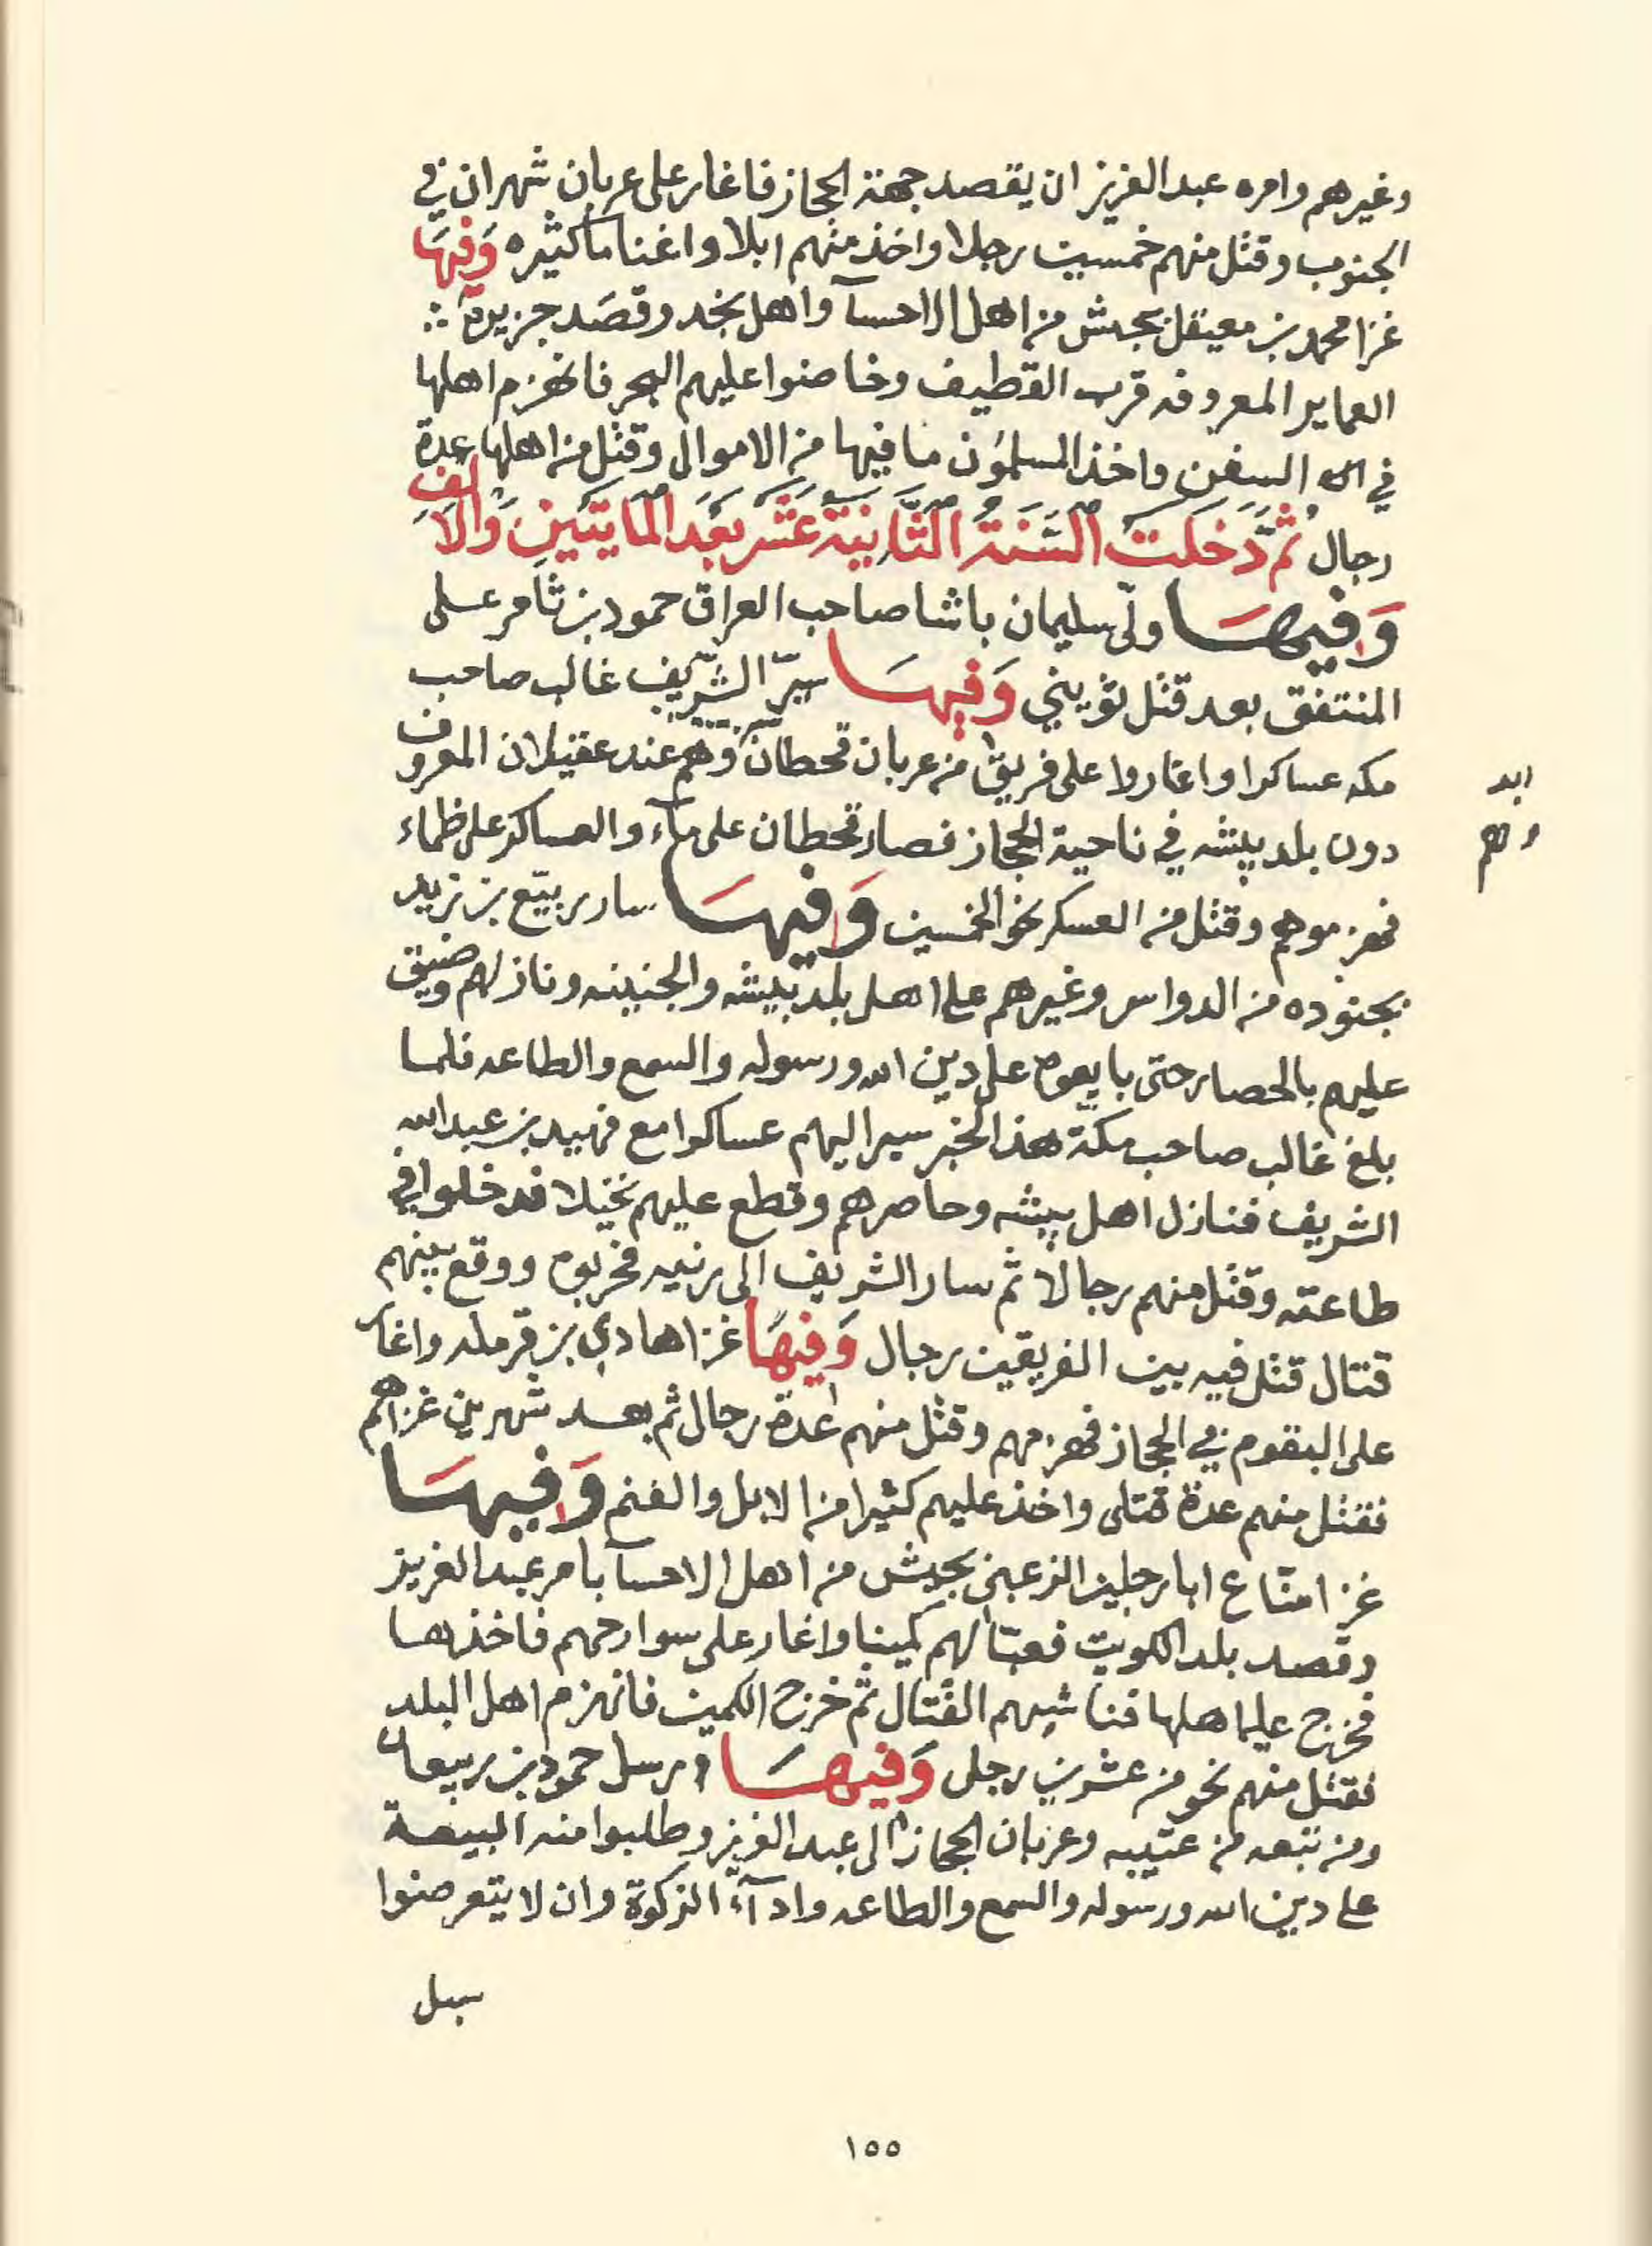 وغيرهم وامره عبد العزيز ان يقصد جهة الحجاز فاغار على عربان شهران في
الجنوب وقتل منهم خمسين رجلا واخذ منهم ابلا واغناما كثيره وَفِيهَا
غزا محمد بن معيقل بجيش من اهل الاحسآ واهل نجد وقصَد جزيرة
العماير المعروفه قرب القطيف وخاضوا عليهم البحر فانهزم اهلها
في السفن واخذ المسلمون ما فيها من الاموال وقتل من اهلها عدة
رجال ثُمَّ دَخَلَت السَّنَةُ الثَّانِيَة عَشَر بَعْدَ المَايَتَيْنِ وَالاَلف
وَفِيهَا ولّى سليمان باشا صاحب العراق حمود بن ثامر على
المنتفق بعد قتل ثويني وَفِيهَا سيّر الشريف غالب صاحب
مكه عساكرا واغاروا على فريق من عربان قحطان وهم عند عقيلان المعروف
دون بلد بيشه في ناحية الحجاز فصار قحطان على مآء والعساكر على ظماء
فهزموهم وقتل من العسكر نحو الخمسين وَفِيهَا سار ربيّع بن زيد
بجنوده من الدواسر وغيرهم على اهل بلد بيشه والجنينه ونازلهم وضيق
عليهم بالحصار حتى بايعوه على دين الله ورسوله والسمع والطاعه فلما
بلغ غالب صاحب مكة هذا الخبر سير اليهم عساكرا مع فهيد بن عبدالله
الشريف فنازل اهل بيشه وحاصرهم وقطع عليهم نخيلا فدخلوا في
طاعته وقتل منهم رجالا ثم سار الشريف الى رنيه فحربوه ووقع بينهم
قتال قتل فيه بين الفريقين رجال وَفِيهَا غزا هادي بن قرمله واغار
على البقوم في الحجاز فهزمهم وقتل منهم عدة رجال ثم بعد شهرين غزاهم
فقتل منهم عدة قتلى واخذ عليهم كثيرا من الابل والغنم وَفِيهَا
غزا منّاع ابا رجلين الزعبي بجيش من اهل الاحسآ بامر عبد العزيز
وقصد بلد الكويت فعبّا لهم كمينا واغار على سوارحهم فاخذها
فخرج عليه اهلها فناشبهم القتال ثم خرج الكمين فانهزم اهل البلد
فقتل منهم نحو من عشرين رجل وَفِيهَا ارسل حمود بن ربيعان
ومن تبعه من عتيبه وعربان الحجاز الى عبد العزيز وطلبوا منه البيعة
على دين الله ورسوله والسمع والطاعه وادآء الزكوة وان لا يتعرضوا
سبل
وهم
١٥٥